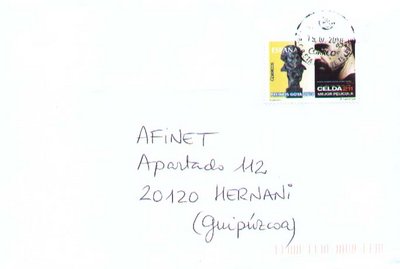 ESPAÑA
CORREOS
PREMIOS GOYA
CELDA 211
MEJOR PELÍCULA
AFINET
Apartado 112
20120 HERNANI
(Guipúzcoa)